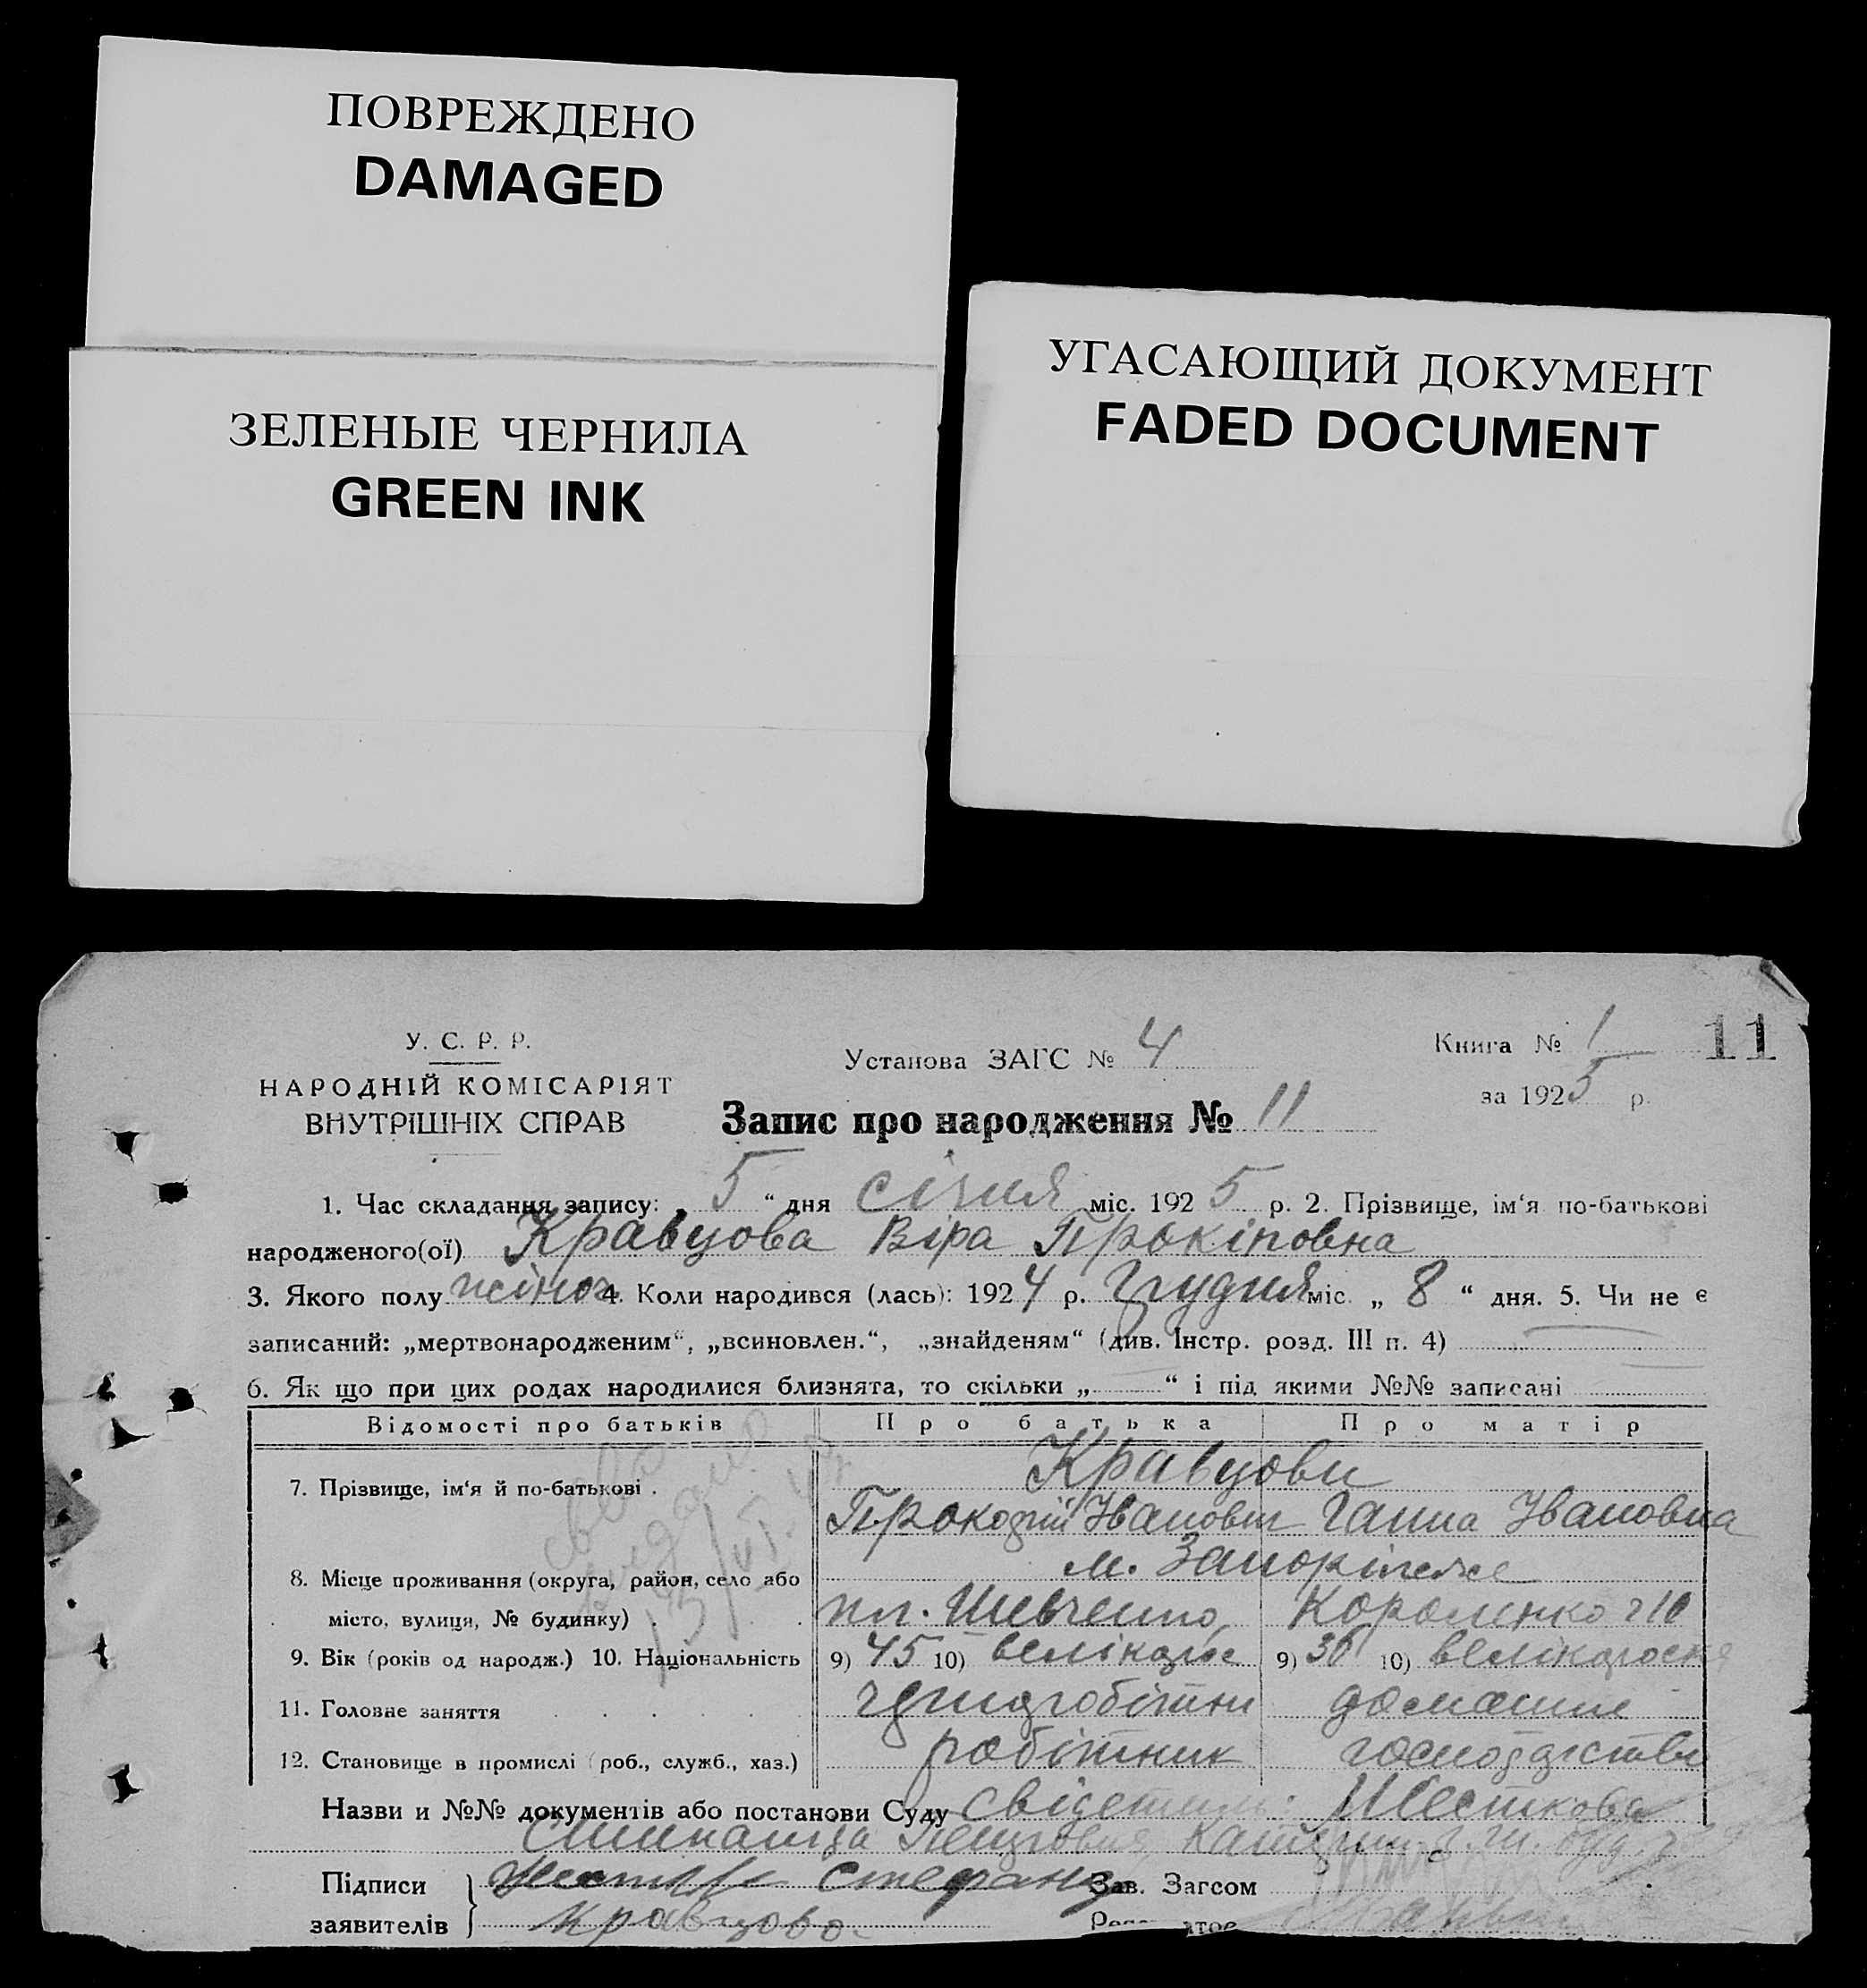 ПОВРЕЖДЕНО
DAMAGED
ЗЕЛЕНЫЕ ЧЕРНИЛА
GREEN INK
УГАСАЮЩИЙ ДОКУМЕНТ
FADED DOCUMENT
У. С. Р. Р.
НАРОДНІЙ КОМІСАРІЯТ
ВНУТРІШНІХ СПРАВ
Установа ЗАГС № 4
Книга № 1 11
за 1925 р.
Запис про народження № 11
1. Час складання запису: „ 5 “ дня січня міс. 1925 р. 2. Прізвище, ім‘я по-батькові
народженого(ої) Кравцова Віра Прокіповна
3. Якого полу жіноч 4. Коли народився (лась): 1924 р. Грудня міс. „ 8 “ дня. 5. Чи не є
записаний: „мертвонародженим“, „всиновлен.“, „знайденям“ (див. Інстр. розд. III п. 4)
6. Як що при цих родах народилися близнята, то скільки „ “ і під якими №№ записані
Відомості про батьків Про батька Про матір
7. Прізвище, ім‘я й по-батькові . Кравцови
Іванович Ганна Івановна
8. Місце проживання (округа, район, село або м. Запоріжже
місто, вулиця, № будинку) пл. Шевченко
9. Вік (років од народж.) 10. Національність 9) 45 10) 9) 36 10)
11. Головне заняття домашне
12. Становище в промислі (роб., служб., хаз.) робітник
Назви и №№ документів або постанови Суду Шесткова
Підписи
заявителів
Кравцова
Зав. Загсом